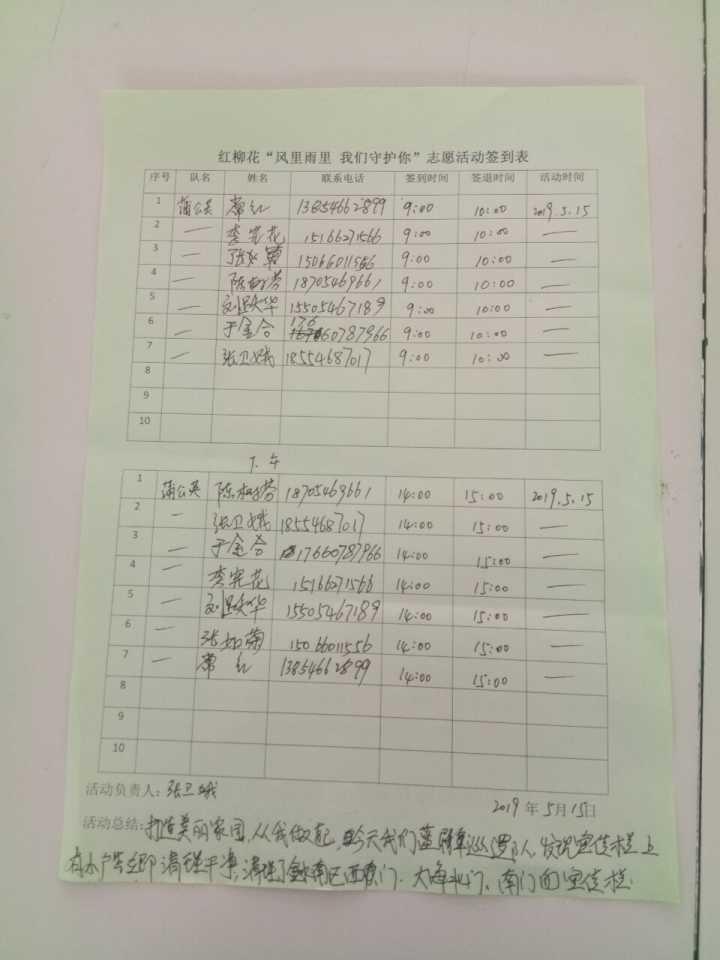 红柳花“风里雨里 我们守护你”志愿活动签到表
序号 队名 姓名 联系电话 签到时间 签退时间 活动时间
1 蒲公英 常红 13854662899 9:00 10:00 2019.5.15
2 — 李完花 15166271566 9:00 10:00 —
3 — 张如菊 15066011556 9:00 10:00 —
4 — 陈树芬 18705469661 9:00 10:00 —
5 — 刘焕华 15505467189 9:00 10:00 —
6 — 于金合 17660787966 9:00 10:00 —
7 — 张卫娥 18554687017 9:00 10:00 —
8
9
10
下午
1 蒲公英 陈树芬 18705469661 14:00 15:00 2019.5.15
2 — 张卫娥 18554687017 14:00 15:00 —
3 — 于金合 17660787966 14:00 15:00 —
4 — 李完花 15166271566 14:00 15:00 —
5 — 刘焕华 15505467189 14:00 15:00 —
6 — 张如菊 15066011556 14:00 15:00 —
7 — 常红 13854662899 14:00 15:00 —
8
9
10
活动负责人：张卫娥
2019年5月15日
活动总结：打造美丽家园，从我做起，今天我们 巡逻队，发现宣传栏上
有小广告立即清理干净，清理了 南区西 门、大海北门、南门面宣传栏.